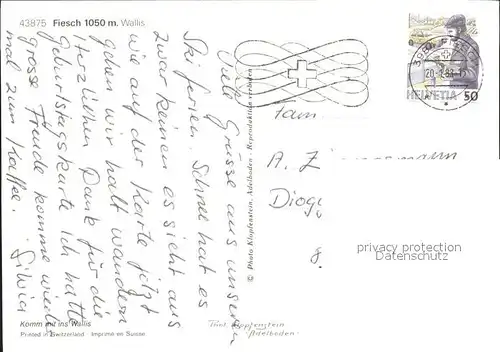 43875 Fiesch 1050 m. Wallis
Viele Grüsse aus unseren
Ski ferien. Schnee hat es
zwar keinen es sieht aus
wie auf der Karte jetzt
gehen wir halt wandern
Herzlichen Dank für die
Geburtstagskarte ich hatte
grosse Freude komme wieder
mal zum Kaffee. Silvia
Komm mit ins Wallis
Printed in Switzerland - Imprimé en Suisse
© Photo Klopfenstein, Adelboden - Reproduktion verboten
HELVETIA 50
Fam
A. Zi mann
Diog
8
privacy protection
Datenschutz
Phot. Klopfenstein
Adelboden